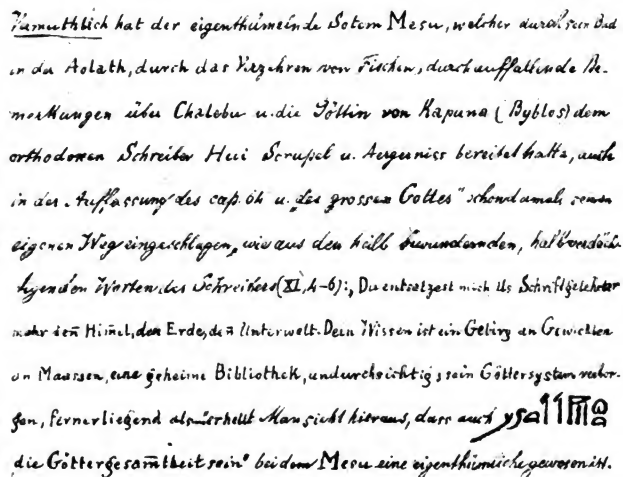 Vermuthlich hat der eigenthümelnde Sotem Mesu, welcher durch sein Bad
in der Aolath, durch das Verzehren von Fischen, durch auffallende Be-
merkungen über Chalebu u. die Göttin von Kapuna (Byblos) dem
orthodoxen Schreiber Hui Scrupel u. Aergerniss bereitet hatte, auch
in der Auffassung des cap. 64 u. „des grossen Gottes" schon damals seinen
eigenen Weg eingeschlagen, wie aus den halb bewundernden, halb verdäch-
tigenden Worten des Schreibers (XI, 4-6): „Du entsetzest mich als Schriftgelehrter
mehr denn Him̄el, denn Erde, denn Unterwelt. Dein Wissen ist ein Gebirg an Gewichten
an Maassen, eine geheime Bibliothek, undurchsichtig; sein Göttersystem verbor-
gen, fernerliegend als erhellt. Man sieht hieraus, dass auch
die Göttergesam̄theit sein" bei dem Mesu eine eigenthümliche gewesen ist.